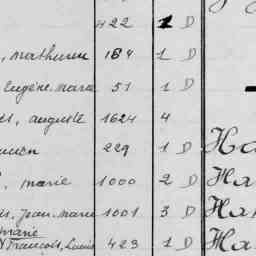 422 1 D
, mathurin 184 1 D
Eugène. marie 51 1 D
, auguste 1624 4
229 1 D Ha
, marie 1000 2 D Ha
, Jean. marie 1001 3 D Ha
marie
François, Louis 423 1 D Ha